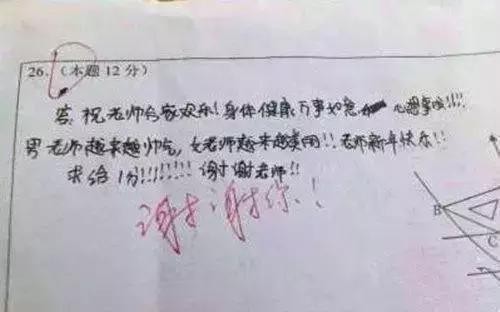 26.（本题12分）
答：祝老师合家欢乐！身体健康万事如意 心想事成!!!!
男老师越来越帅气，女老师越来越美丽!!老师新年快乐!!
求给1分!!!!!!!!谢谢老师!!
谢谢你！
B
C